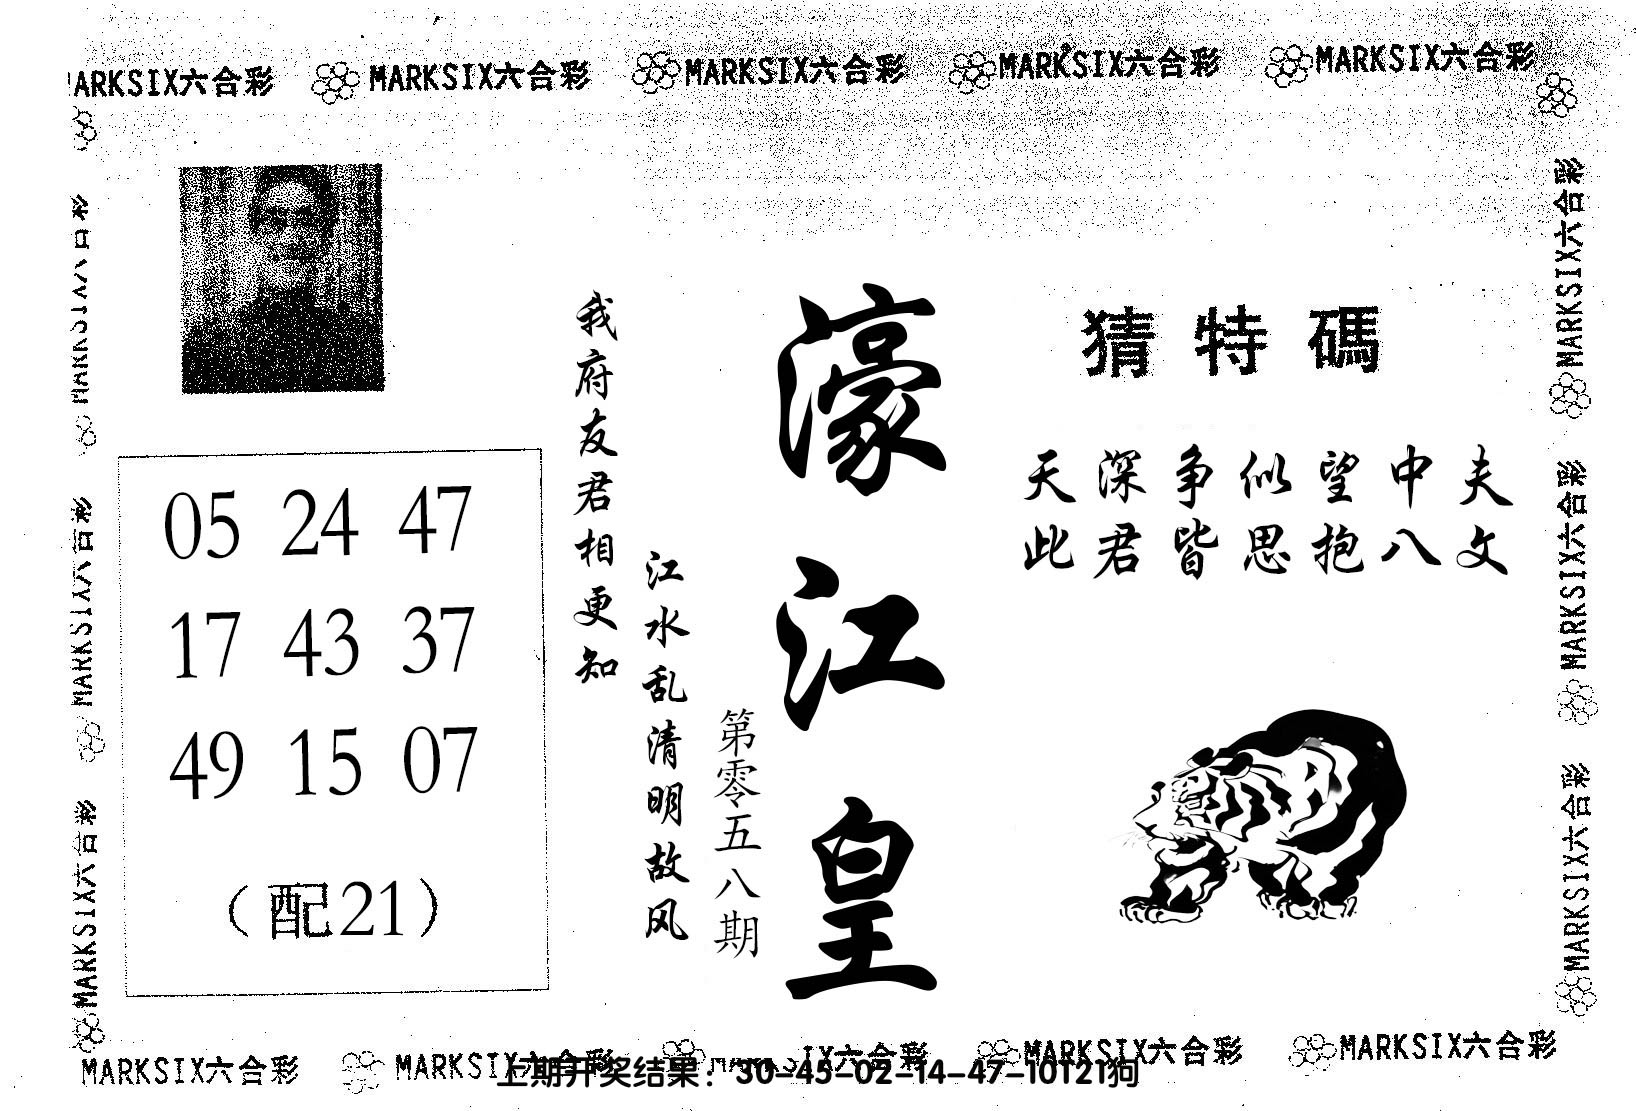 MARKSIX六合彩 MARKSIX六合彩 MARKSIX六合彩 MARKSIX六合彩 MARKSIX六合彩
MARKSIX六合彩
MARKSIX六合彩
MARKSIX六合彩
05 24 47
17 43 37
49 15 07
（配21）
我府友君相更知
江水乱清明故风
第零五八期
濠江皇
猜特碼
天深争似望中夫
此君皆思抱八文
MARKSIX六合彩
MARKSIX六合彩
MARKSIX六合彩
MARKSIX六合彩 MARKSIX六合彩 MARKSIX六合彩 MARKSIX六合彩 MARKSIX六合彩
上期开奖结果：30-45-02-14-47-10T21狗